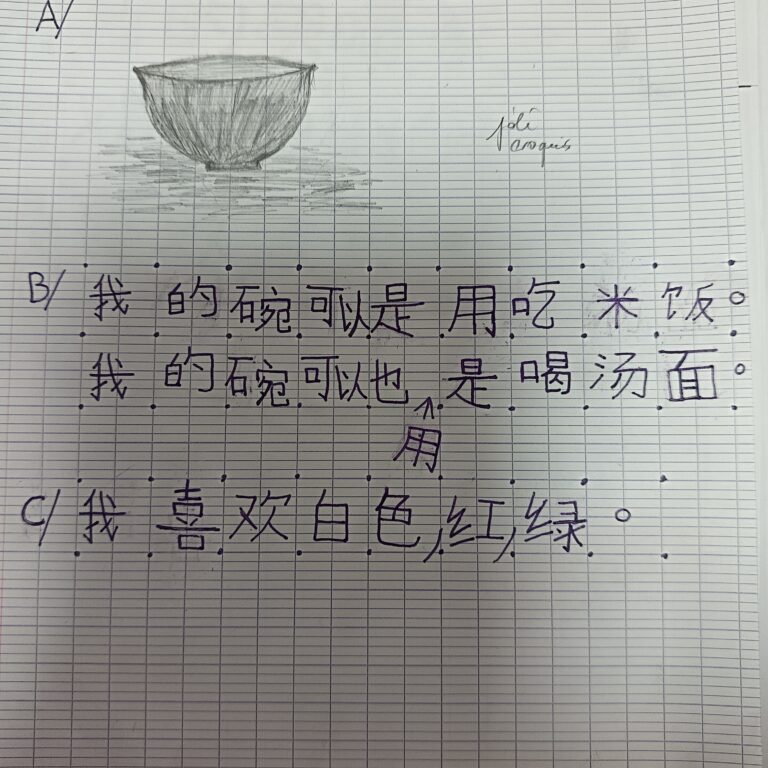 A/
joli
croquis
B/ 我的碗可以是用吃米饭。
我的碗可以也是喝汤面。
↑
用
C/ 我喜欢白色,红,绿。